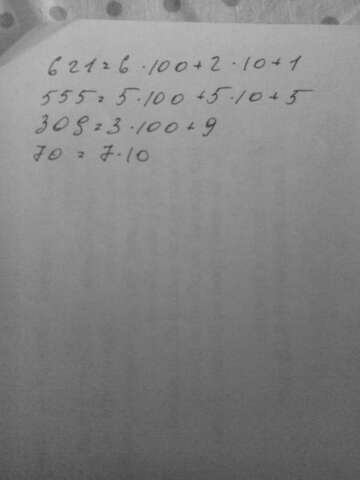 621=6·100+2·10+1
555=5·100+5·10+5
309=3·100+9
70=7·10